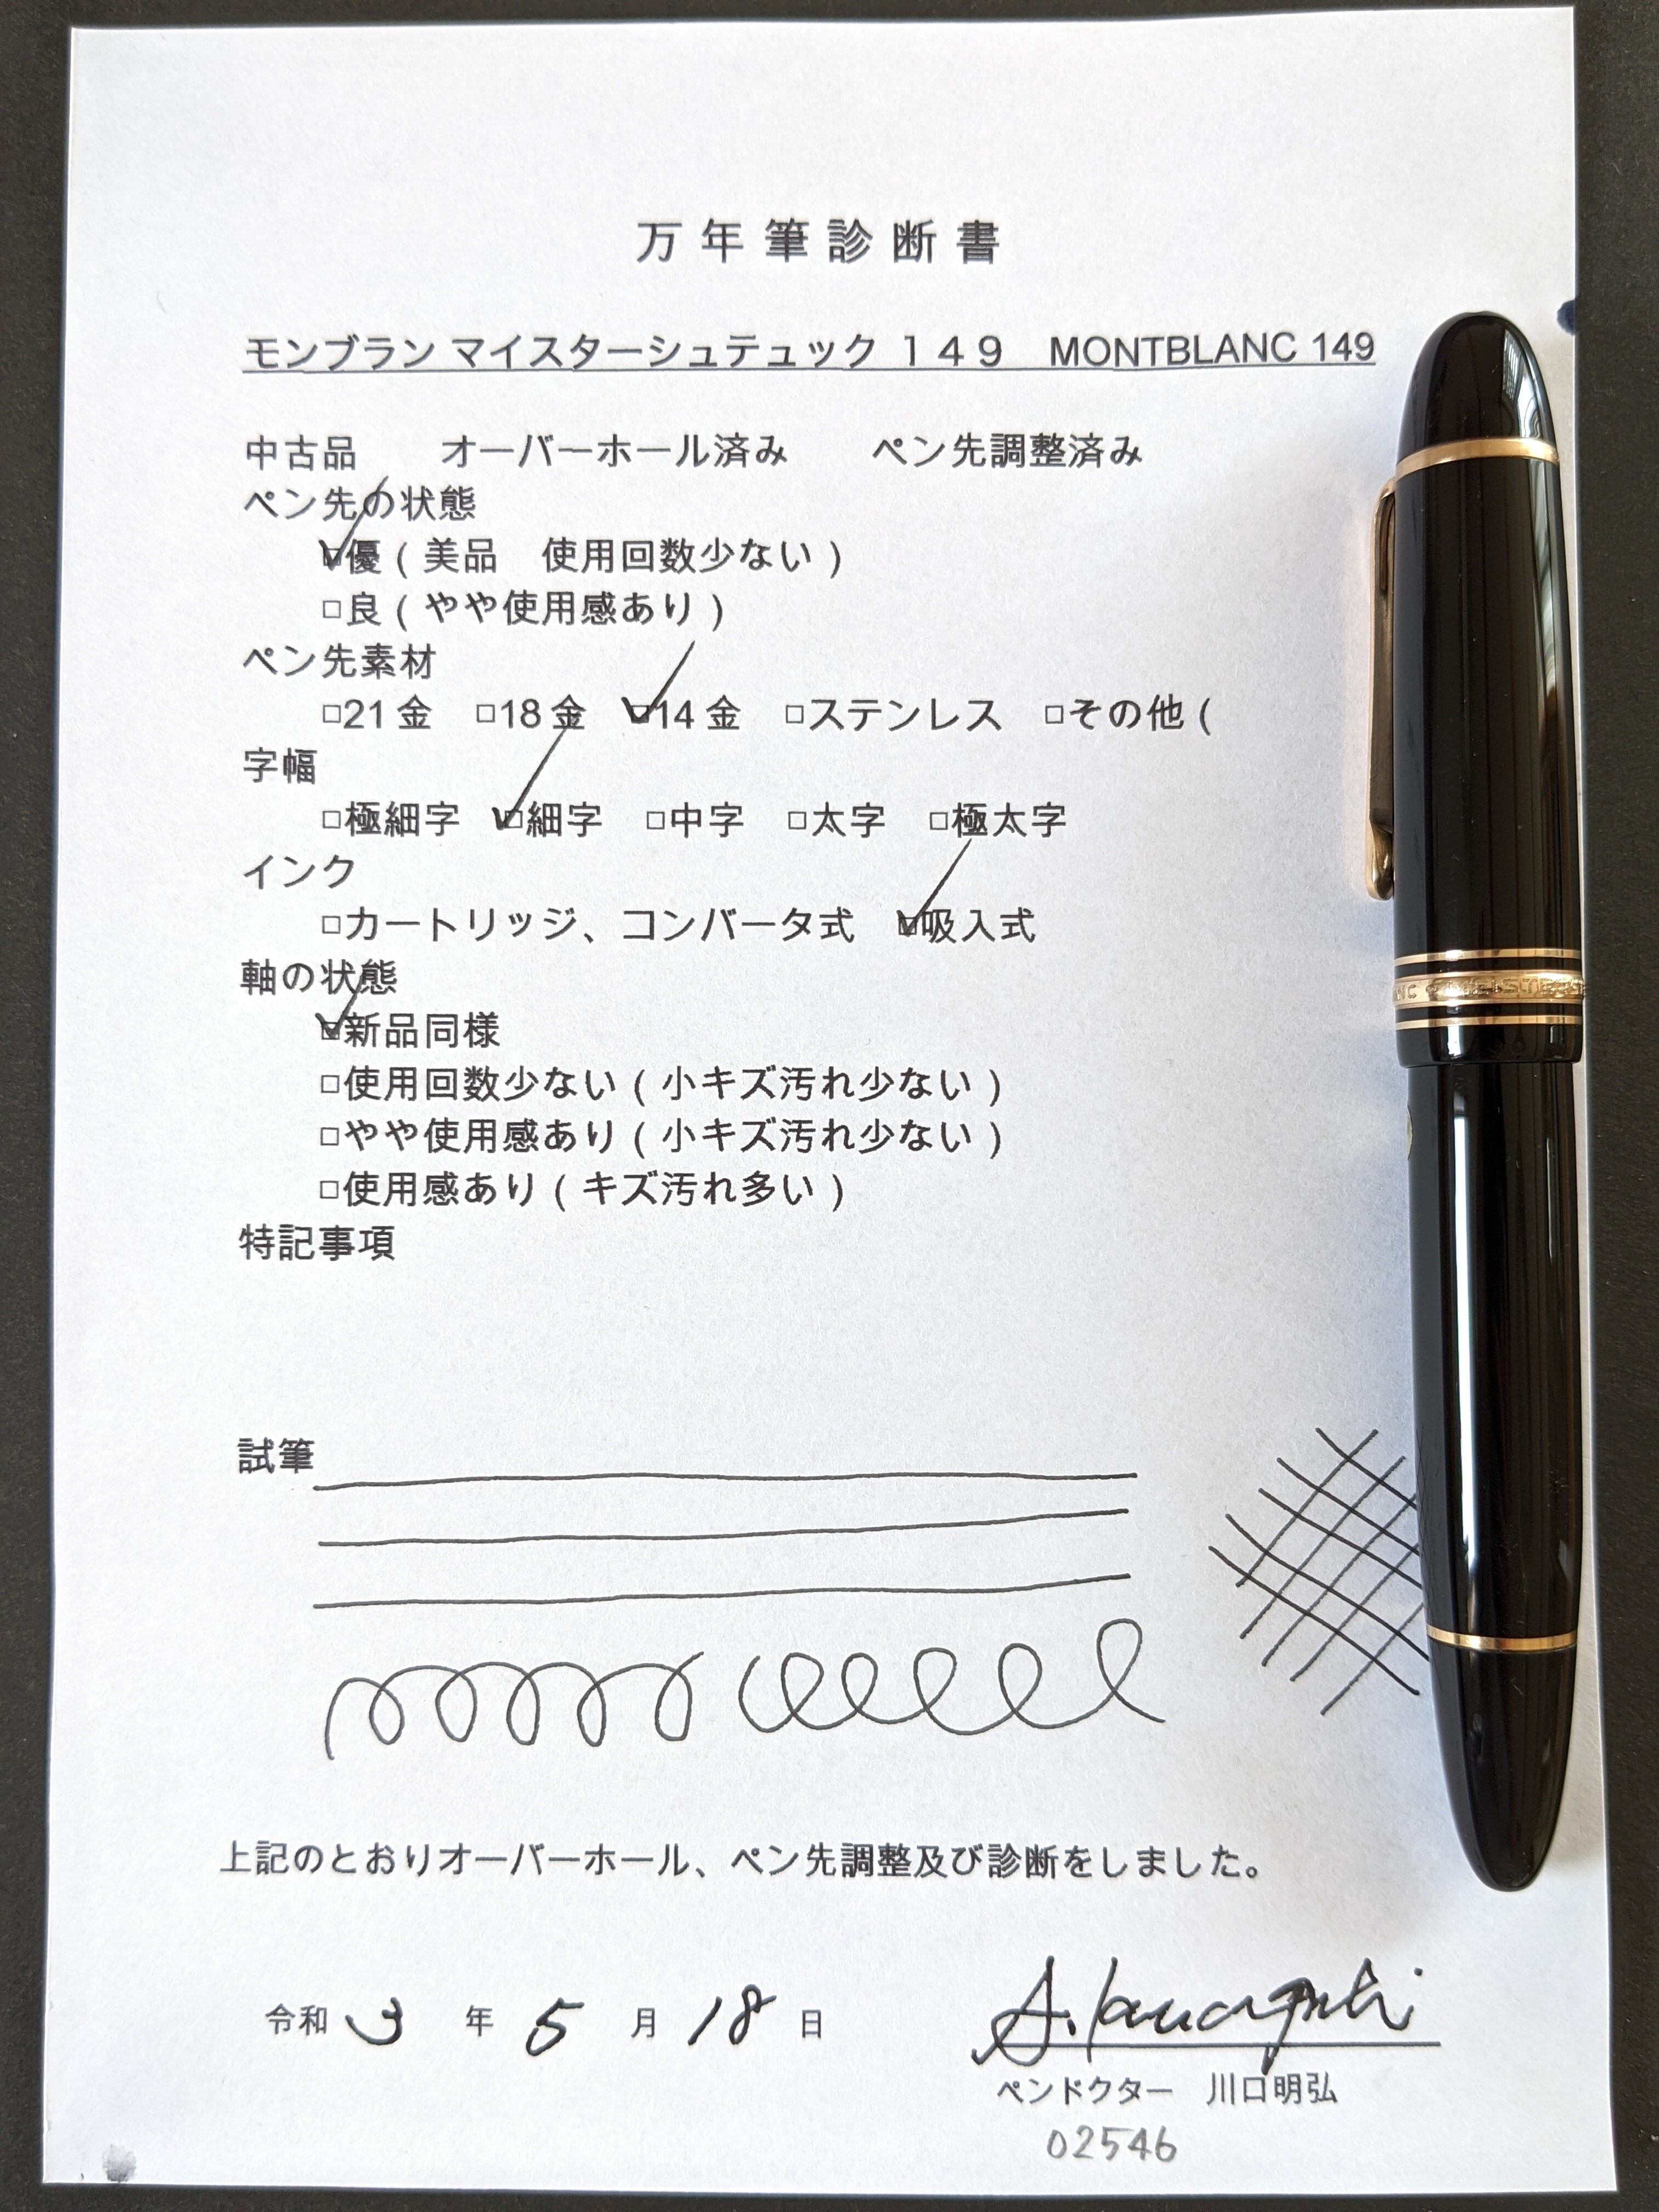 万年筆診断書
モンブラン マイスターシュテュック １４９　MONTBLANC 149
中古品　　オーバーホール済み　　ペン先調整済み
ペン先の状態
☑優（美品　使用回数少ない）
□良（やや使用感あり）
ペン先素材
□21金　□18金　☑14金　□ステンレス　□その他（
字幅
□極細字　☑細字　□中字　□太字　□極太字
インク
□カートリッジ、コンバータ式　☑吸入式
軸の状態
☑新品同様
□使用回数少ない（小キズ汚れ少ない）
□やや使用感あり（小キズ汚れ少ない）
□使用感あり（キズ汚れ多い）
特記事項
試筆
上記のとおりオーバーホール、ペン先調整及び診断をしました。
令和 3 年 5 月 18 日
ペンドクター　川口明弘
02546